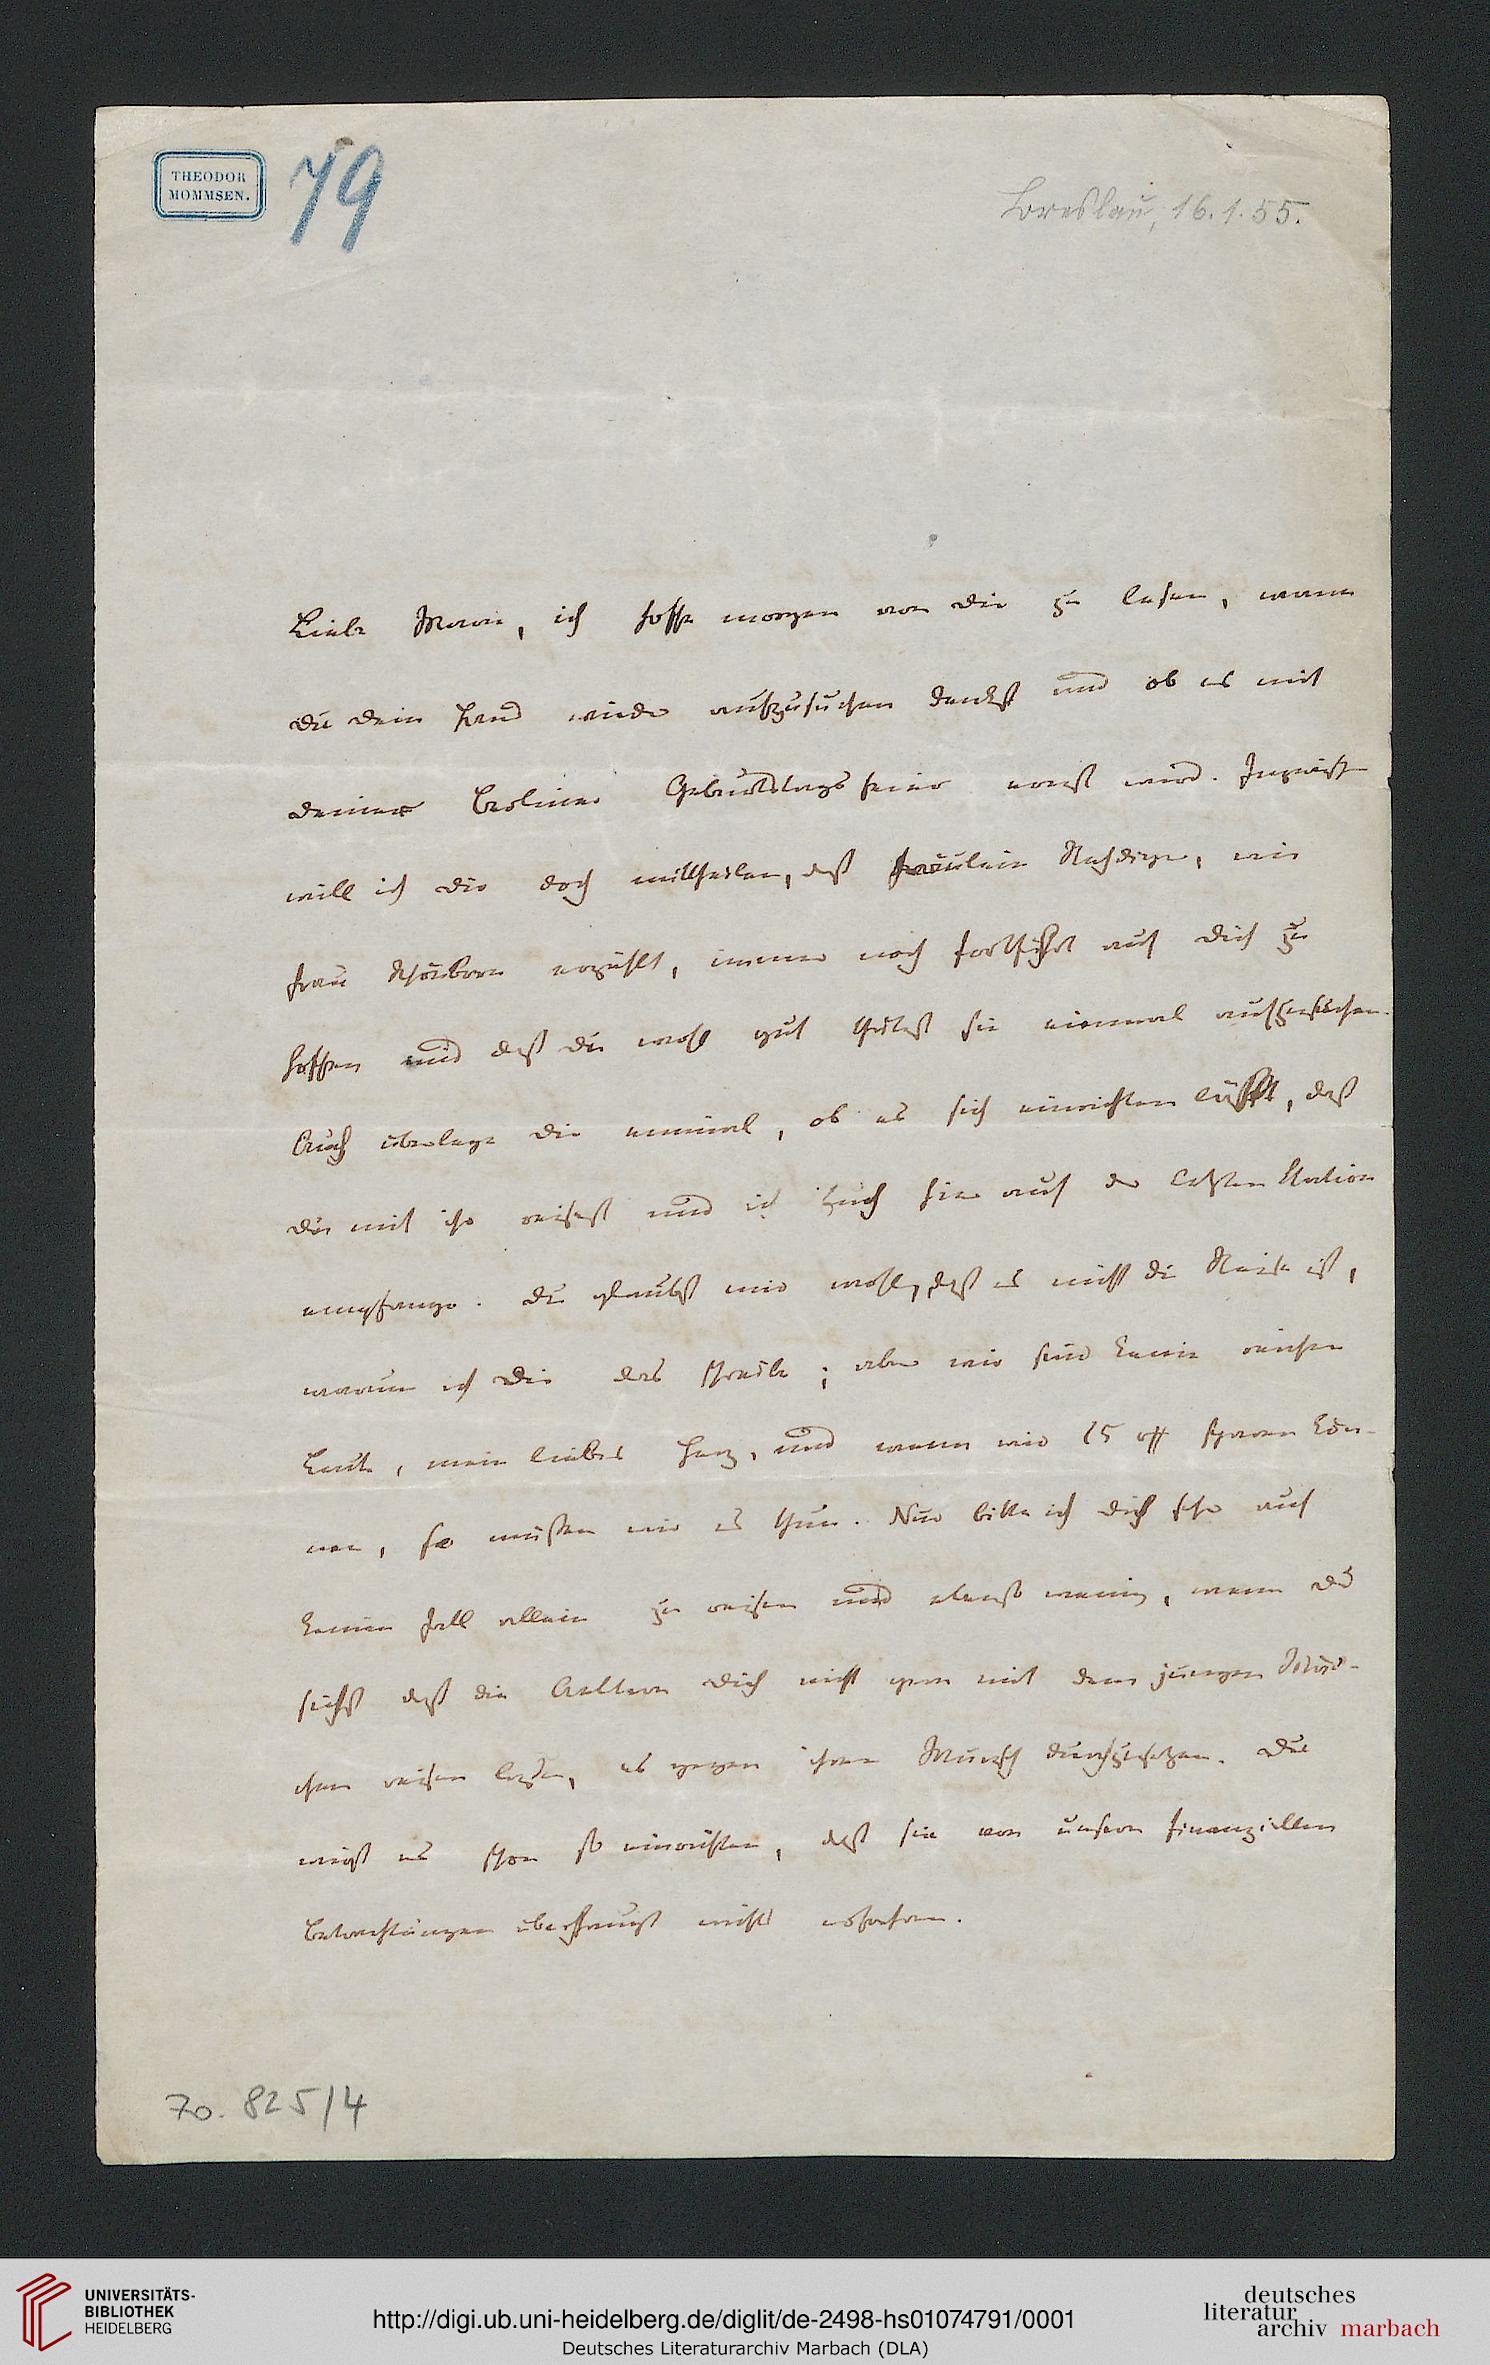 THEODOR
MOMMSEN.
79
Breslau, 16.1.55.
Liebe Marie, ich hoffe morgen von dir zu lesen, wann
du dein Haus wieder aufzusuchen denkst und ob es mit
deiner Berliner Geburtstagsfeier ernst wird. Inzwischen
will ich dir doch mittheilen, daß Fräulein
Frau Schönborn erzählt, immer noch fortfährt auf dich zu
hoffen und daß du wohl gut thätest sie einmal aufzusuchen.
Auch überlege dir einmal, ob es sich einrichten läßt, daß
du mit ihr reisest und ich Euch hier auf der letzten Station
empfange. Du glaubst mir wohl, daß es nicht die Reise ist,
warum ich dir das schreibe; aber wir sind keine reichen
Leute, mein liebes Herz, und wenn wir 15 sparen kön-
nen, so müssen wir es thun. Nur bitte ich dich sehr auf
keinen Fall allein zu reisen und ebenso wenig, wenn du
siehst daß die Aeltern dich nicht gern mit dem jungen
reisen lassen, es gegen ihren Wunsch durchzusetzen. Du
wirst es schon so einrichten, daß sie von unsern finanziellen
Betrachtungen überhaupt nichts erfahren.
70. 825/4
UNIVERSITÄTS-
BIBLIOTHEK
HEIDELBERG
http://digi.ub.uni-heidelberg.de/diglit/de-2498-hs01074791/0001
Deutsches Literaturarchiv Marbach (DLA)
deutsches
literatur
archiv marbach